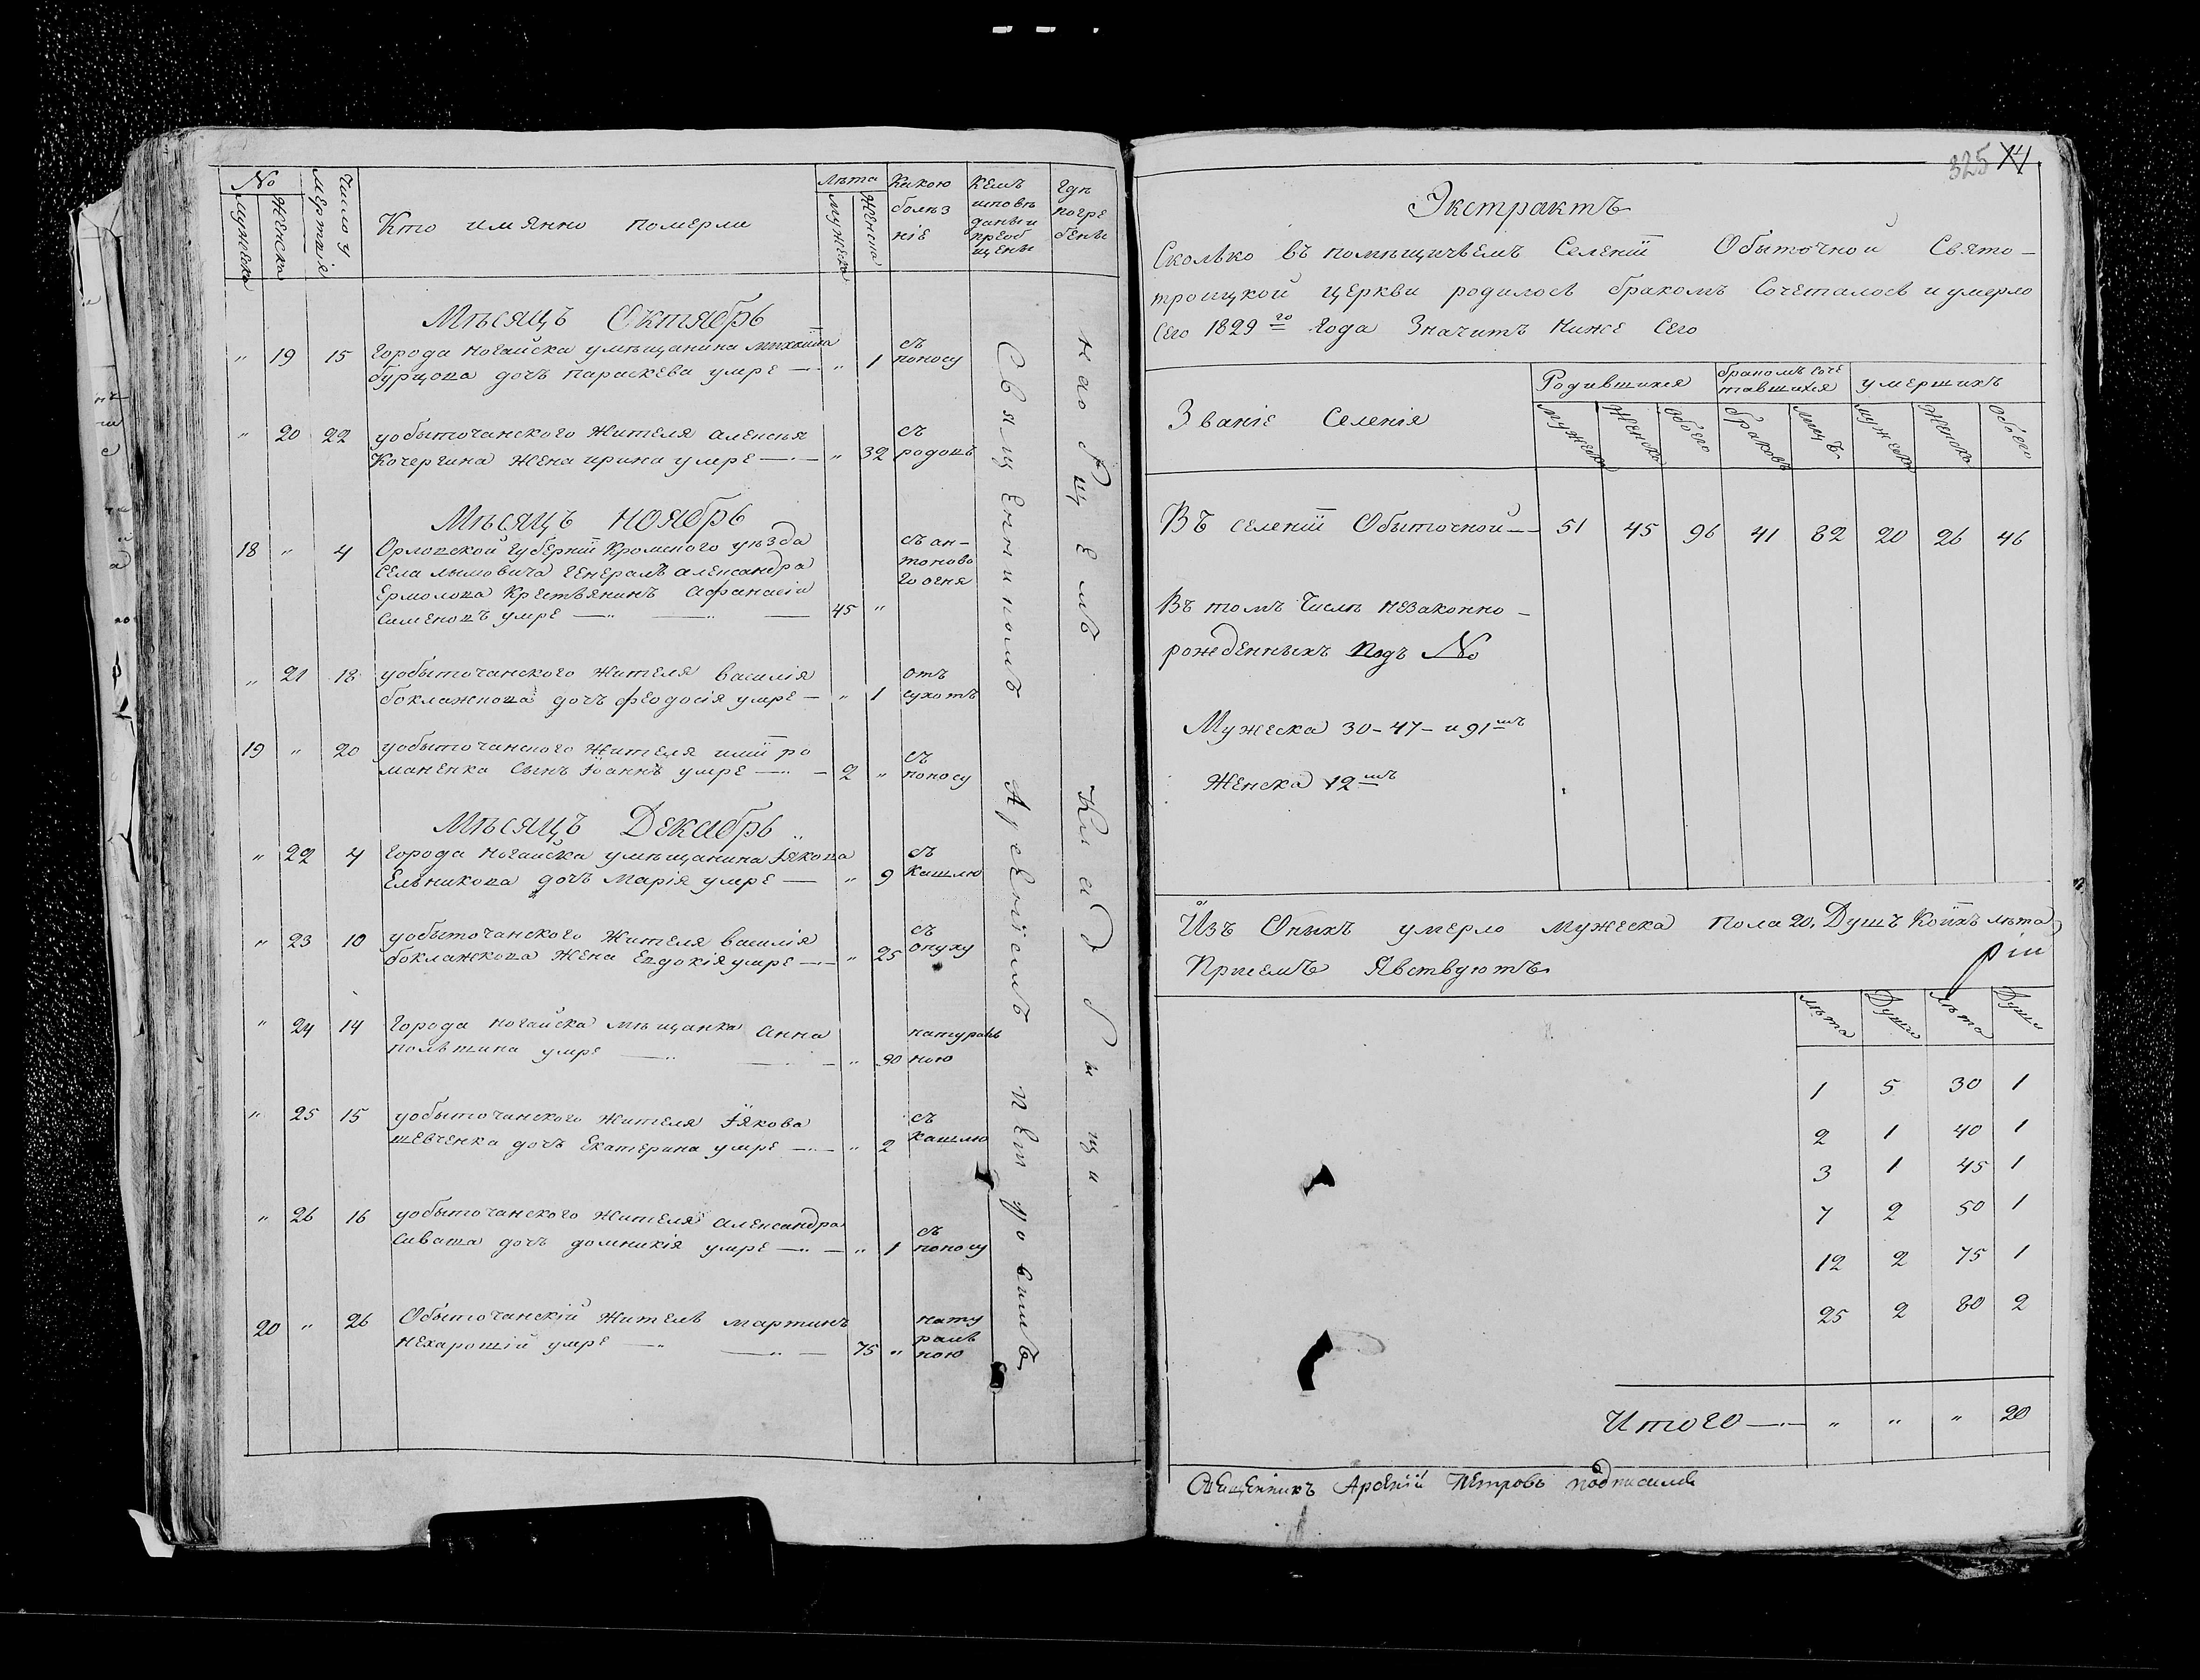 №
мужеска
женска
число умертвія
Кто имянно померли
лѣта
мужеска
женска
Какою болѣз ніе
Кемъ исповѣ даны и преоб щены
Гдѣ погре бены
Мѣсяцъ Октябрь
" 19 15 Города Ногайска умѣщанина
бурцова дочъ параскева умре — " 1 съ поносу
" 20 22 уобыточанского Жителя алексѣя
Кочергина Жена ирина умре — " 32 съ родовъ
Мѣсяцъ Ноябрь
18 " 4 Орловской Губерніи Кромского уѣзда
Села лымовича Генералъ александра
Ермолова Крестьянинъ Афанасіи
Сименовъ умре — 45 " съ ан- тоново го огня
" 21 18 уобыточанского Жителя василія
бокланскова дочъ феодосія умре — " 1 отъ сухотъ
19 " 20 уобыточанского Жителя иліи ро
маненка Сынъ Іоаннъ умре — 2 " съ поносу
Мѣсяцъ Декабрь
" 22 4 Города Ногайска умѣщанина Іякова
Ельникова дочъ Марія умре — " 9 съ Кашлю
" 23 10 уобыточанского Жителя василія
бокланскова Жена Евдокія умре — " 25 съ опуху
" 24 14 Города Ногайска мѣщанка Анна
умре — " 90 натураль ною
" 25 15 уобыточанского Жителя Іякова
шевченка дочъ Екатерина умре — " 2 съ Кашлю
" 26 16 уобыточанского Жителя александра
Сиваша дочъ домникія умре — " 1 съ поносу
20 " 26 Обыточанскій Житель мартинъ
нехарошій умре — 75 " нату раль ною
Священникомъ Арсеніемъ Петровымъ
на общемъ Кладбищи
325
Экстрактъ
Сколько въ помѣщичьемъ Селеніи Обыточной Свято-
троицкой Церкви родилось бракомъ Сочеталось и умерло
Сего 1829го Года Значитъ Ниже Сего
Званіе Селенія
Родившихся
бракомъ соче тавшихся
умершихъ
мужеска
женска
обоего
браковъ
лицъ
мужеска
женска
обоего
Въ селеніи Обыточной — 51 45 96 41 82 20 26 46
Въ томъ Числѣ незаконно-
рожденныхъ подъ №
Мужеска 30-47-и 91мъ
Женска 12мъ
Изъ Оныхъ умерло мужеска пола 20. Душъ Коихъ лѣта
При семъ Явствуютъ.
лѣта Души лѣта Души
1 5 30 1
2 1 40 1
3 1 45 1
7 2 50 1
12 2 75 1
25 2 80 2
Итого — " " " 20
Священникъ Арсеній Петровъ подписалъ